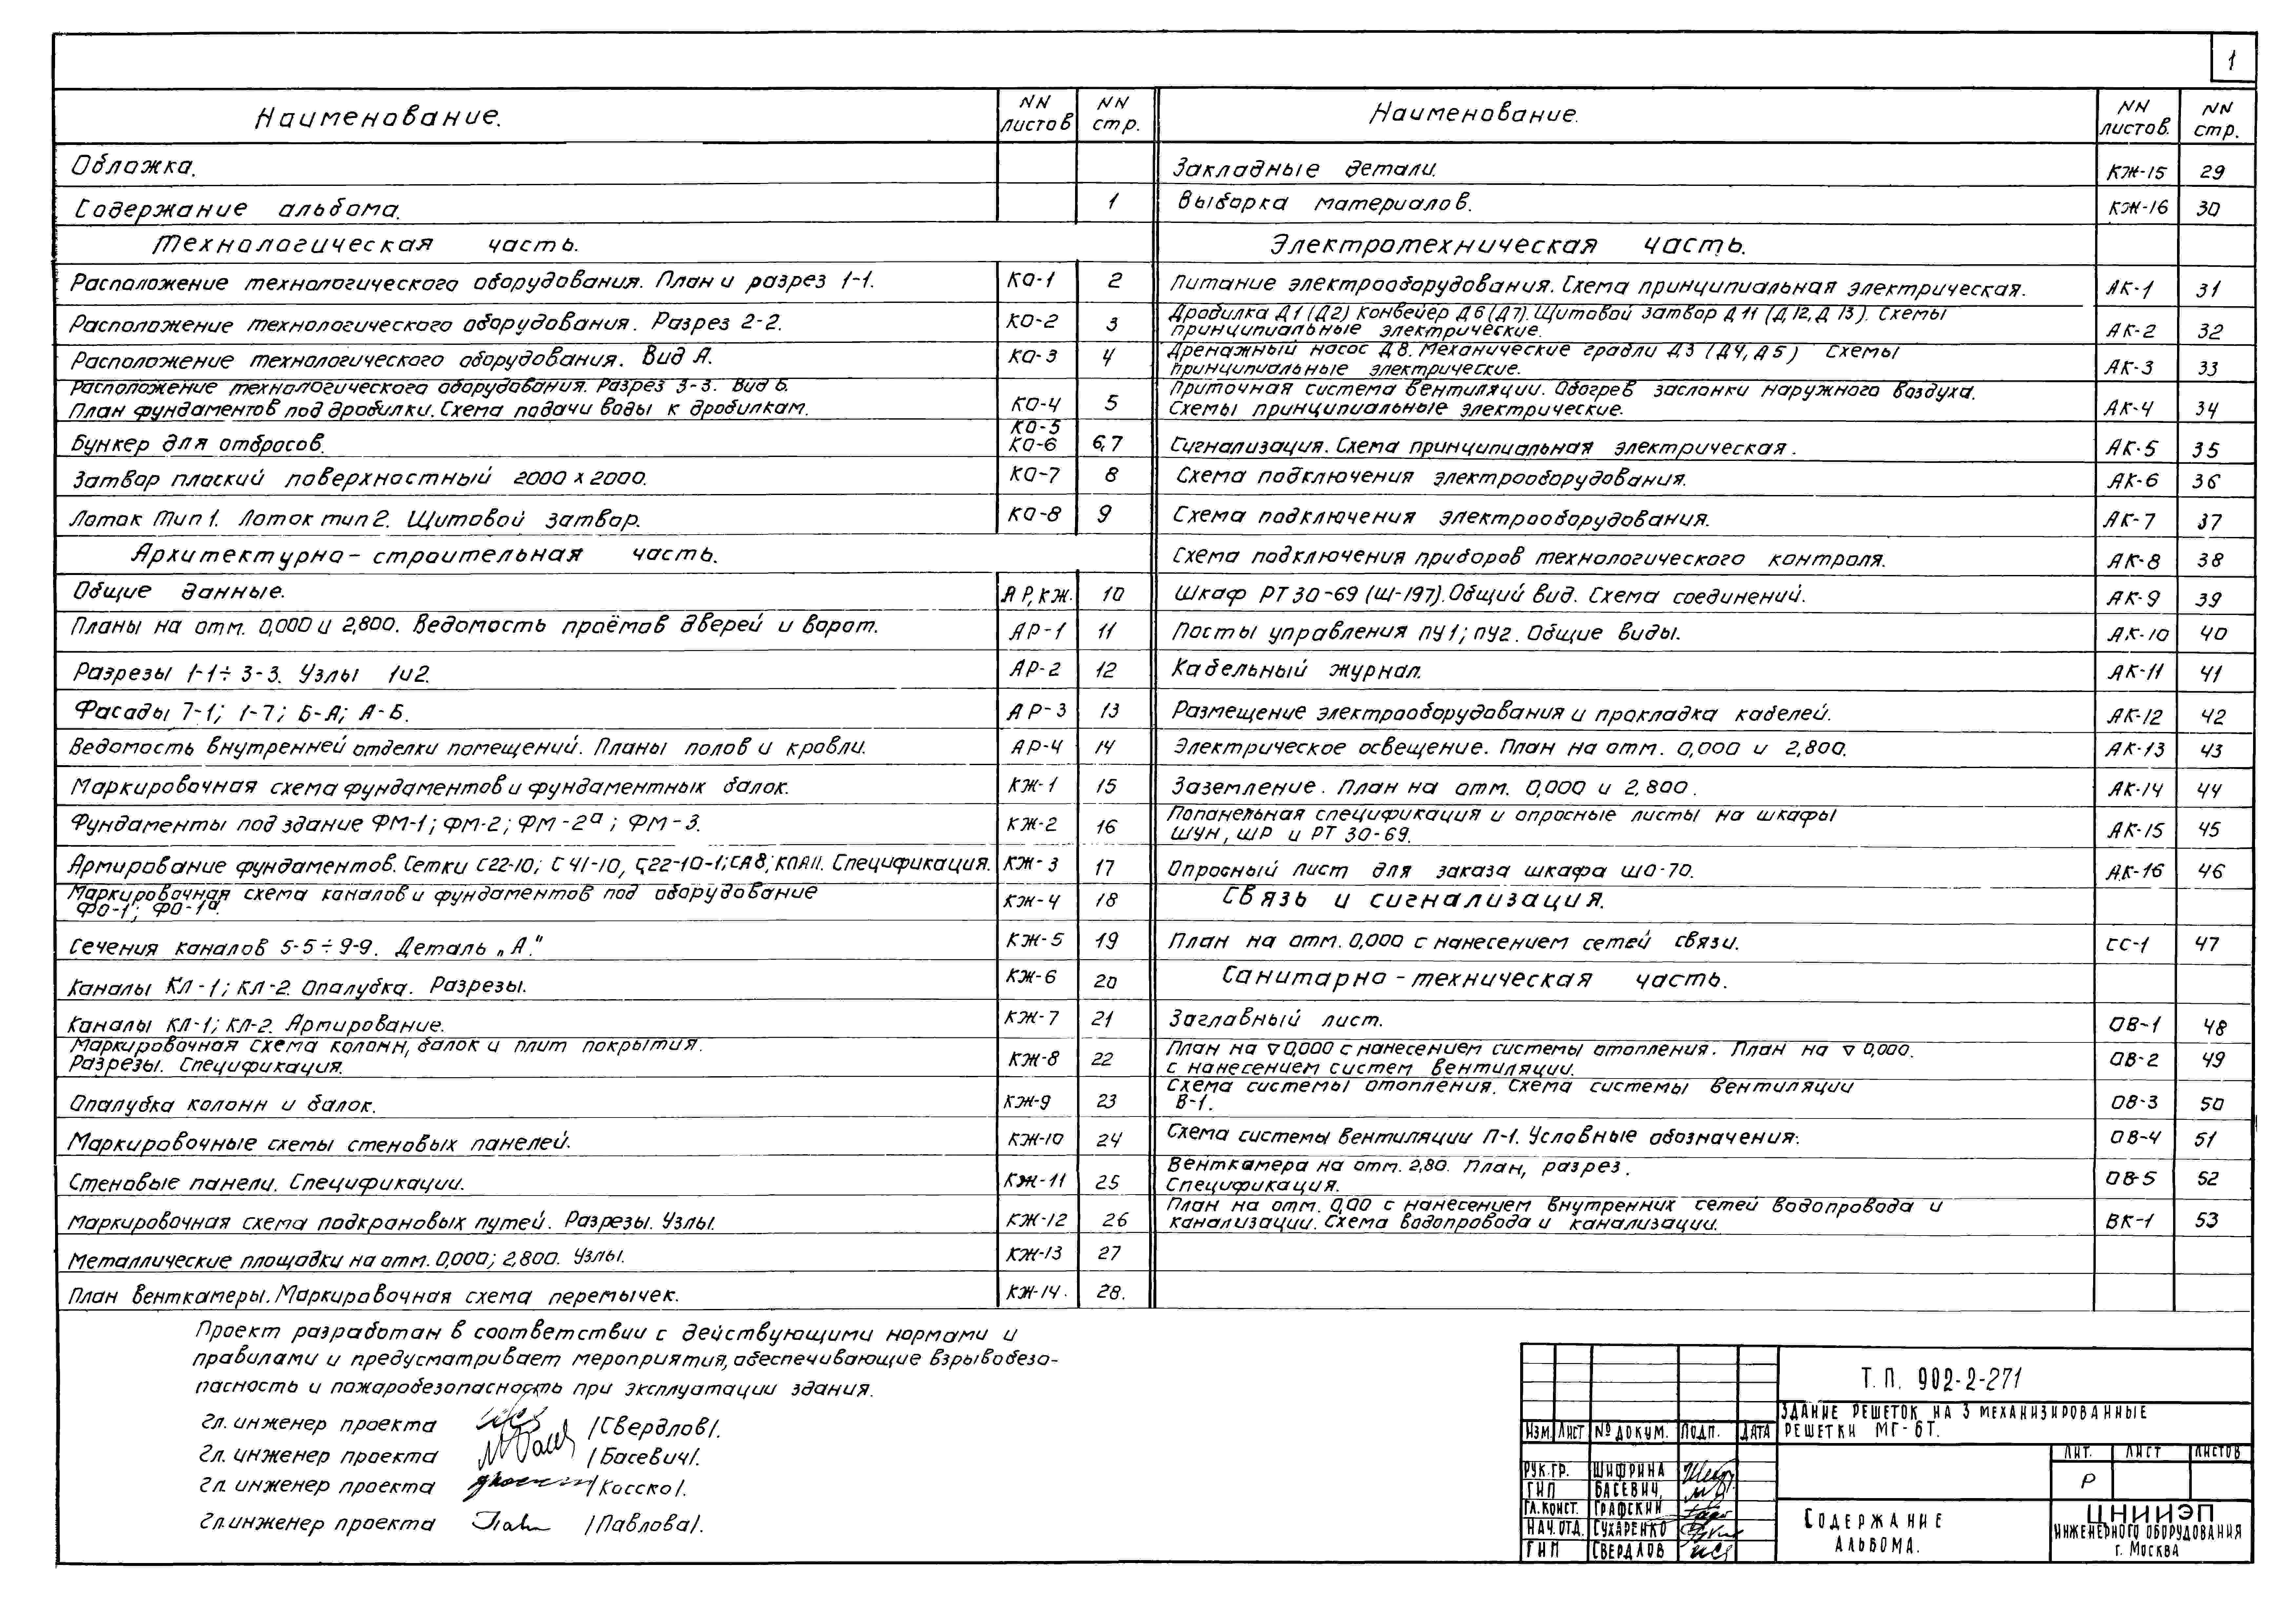 1
Наименование. NN листов NN стр.
Обложка.
Содержание альбома. 1
Технологическая часть.
Расположение технологического оборудования. План и разрез 1-1. КО-1 2
Расположение технологического оборудования. Разрез 2-2. КО-2 3
Расположение технологического оборудования. Вид А. КО-3 4
Расположение технологического оборудования. Разрез 3-3. Вид Б.
План фундаментов под дробилки. Схема подачи воды к дробилкам. КО-4 5
Бункер для отбросов. КО-5 КО-6 6,7
Затвор плоский поверхностный 2000 x 2000. КО-7 8
Лоток тип 1. Лоток тип 2. Щитовой затвор. КО-8 9
Архитектурно-строительная часть.
Общие данные. АР, КЖ. 10
Планы на отм. 0,000 и 2,800. Ведомость проёмов дверей и ворот. АР-1 11
Разрезы 1-1÷3-3. Узлы 1и2. АР-2 12
Фасады 7-1; 1-7; Б-А; А-Б. АР-3 13
Ведомость внутренней отделки помещений. Планы полов и кровли. АР-4 14
Маркировочная схема фундаментов и фундаментных балок. КЖ-1 15
Фундаменты под здание ФМ-1; ФМ-2; ФМ-2а; ФМ-3. КЖ-2 16
Армирование фундаментов. Сетки С22-10; С41-10, С22-10-1; СА8; КПАII. Спецификация. КЖ-3 17
Маркировочная схема каналов и фундаментов под оборудование
ФО-1; ФО-1а. КЖ-4 18
Сечения каналов 5-5÷9-9. Деталь „А." КЖ-5 19
Каналы КЛ-1; КЛ-2. Опалубка. Разрезы. КЖ-6 20
Каналы КЛ-1; КЛ-2. Армирование. КЖ-7 21
Маркировочная схема колонн, балок и плит покрытия.
Разрезы. Спецификация. КЖ-8 22
Опалубка колонн и балок. КЖ-9 23
Маркировочные схемы стеновых панелей. КЖ-10 24
Стеновые панели. Спецификации. КЖ-11 25
Маркировочная схема подкрановых путей. Разрезы. Узлы. КЖ-12 26
Металлические площадки на отм. 0,000; 2,800. Узлы. КЖ-13 27
План венткамеры. Маркировочная схема перемычек. КЖ-14. 28.
Наименование. NN листов. NN стр.
Закладные детали. КЖ-15 29
Выборка материалов. КЖ-16 30
Электротехническая часть.
Питание электрооборудования. Схема принципиальная электрическая. АК-1 31
Дробилка Д1 (Д2) Конвейер Д6 (Д7). Щитовой затвор Д11 (Д12, Д13). Схемы
принципиальные электрические. АК-2 32
Дренажный насос Д8. Механические грабли Д3 (Д4, Д5) Схемы
принципиальные электрические. АК-3 33
Приточная система вентиляции. Обогрев заслонки наружного воздуха.
Схемы принципиальные электрические. АК-4 34
Сигнализация. Схема принципиальная электрическая. АК-5 35
Схема подключения электрооборудования. АК-6 36
Схема подключения электрооборудования. АК-7 37
Схема подключения приборов технологического контроля. АК-8 38
Шкаф РТ 30-69 (Ш-197). Общий вид. Схема соединений. АК-9 39
Посты управления ПУ1; ПУ2. Общие виды. АК-10 40
Кабельный журнал. АК-11 41
Размещение электрооборудования и прокладка кабелей. АК-12 42
Электрическое освещение. План на отм. 0,000 и 2,800. АК-13 43
Заземление. План на отм. 0,000 и 2,800. АК-14 44
Попанельная спецификация и опросные листы на шкафы
ШУН, ШР и РТ 30-69. АК-15 45
Опросный лист для заказа шкафа ШО-70. АК-16 46
Связь и сигнализация.
План на отм. 0,000 с нанесением сетей связи. СС-1 47
Санитарно-техническая часть.
Заглавный лист. ОВ-1 48
План на ▽ 0,000 с нанесением системы отопления. План на ▽ 0,000.
с нанесением систем вентиляции. ОВ-2 49
Схема системы отопления. Схема системы вентиляции
В-1. ОВ-3 50
Схема системы вентиляции П-1. Условные обозначения. ОВ-4 51
Венткамера на отм. 2,80. План, разрез.
Спецификация. ОВ-5 52
План на отм. 0,00 с нанесением внутренних сетей водопровода и
канализации. Схема водопровода и канализации. ВК-1 53
Проект разработан в соответствии с действующими нормами и
правилами и предусматривает мероприятия, обеспечивающие взрывобезо-
пасность и пожаробезопасность при эксплуатации здания.
Гл. инженер проекта /Свердлов/.
Гл. инженер проекта /Басевич/.
Гл. инженер проекта /Косско/.
Гл. инженер проекта /Павлова/.
Т.П. 902-2-271
ЗДАНИЕ РЕШЕТОК НА 3 МЕХАНИЗИРОВАННЫЕ
РЕШЕТКИ МГ-6Т.
ИЗМ. ЛИСТ № ДОКУМ. ПОДП. ДАТА
РУК.ГР. ШИФРИНА
ГИП БАСЕВИЧ,
ГЛ.КОНСТ. ГРАФСКИЙ
НАЧ.ОТД. СУХАРЕНКО
ГИП СВЕРДЛОВ
ЛИТ. ЛИСТ ЛИСТОВ
Р
СОДЕРЖАНИЕ
АЛЬБОМА.
ЦНИИЭП
ИНЖЕНЕРНОГО ОБОРУДОВАНИЯ
Г. МОСКВА